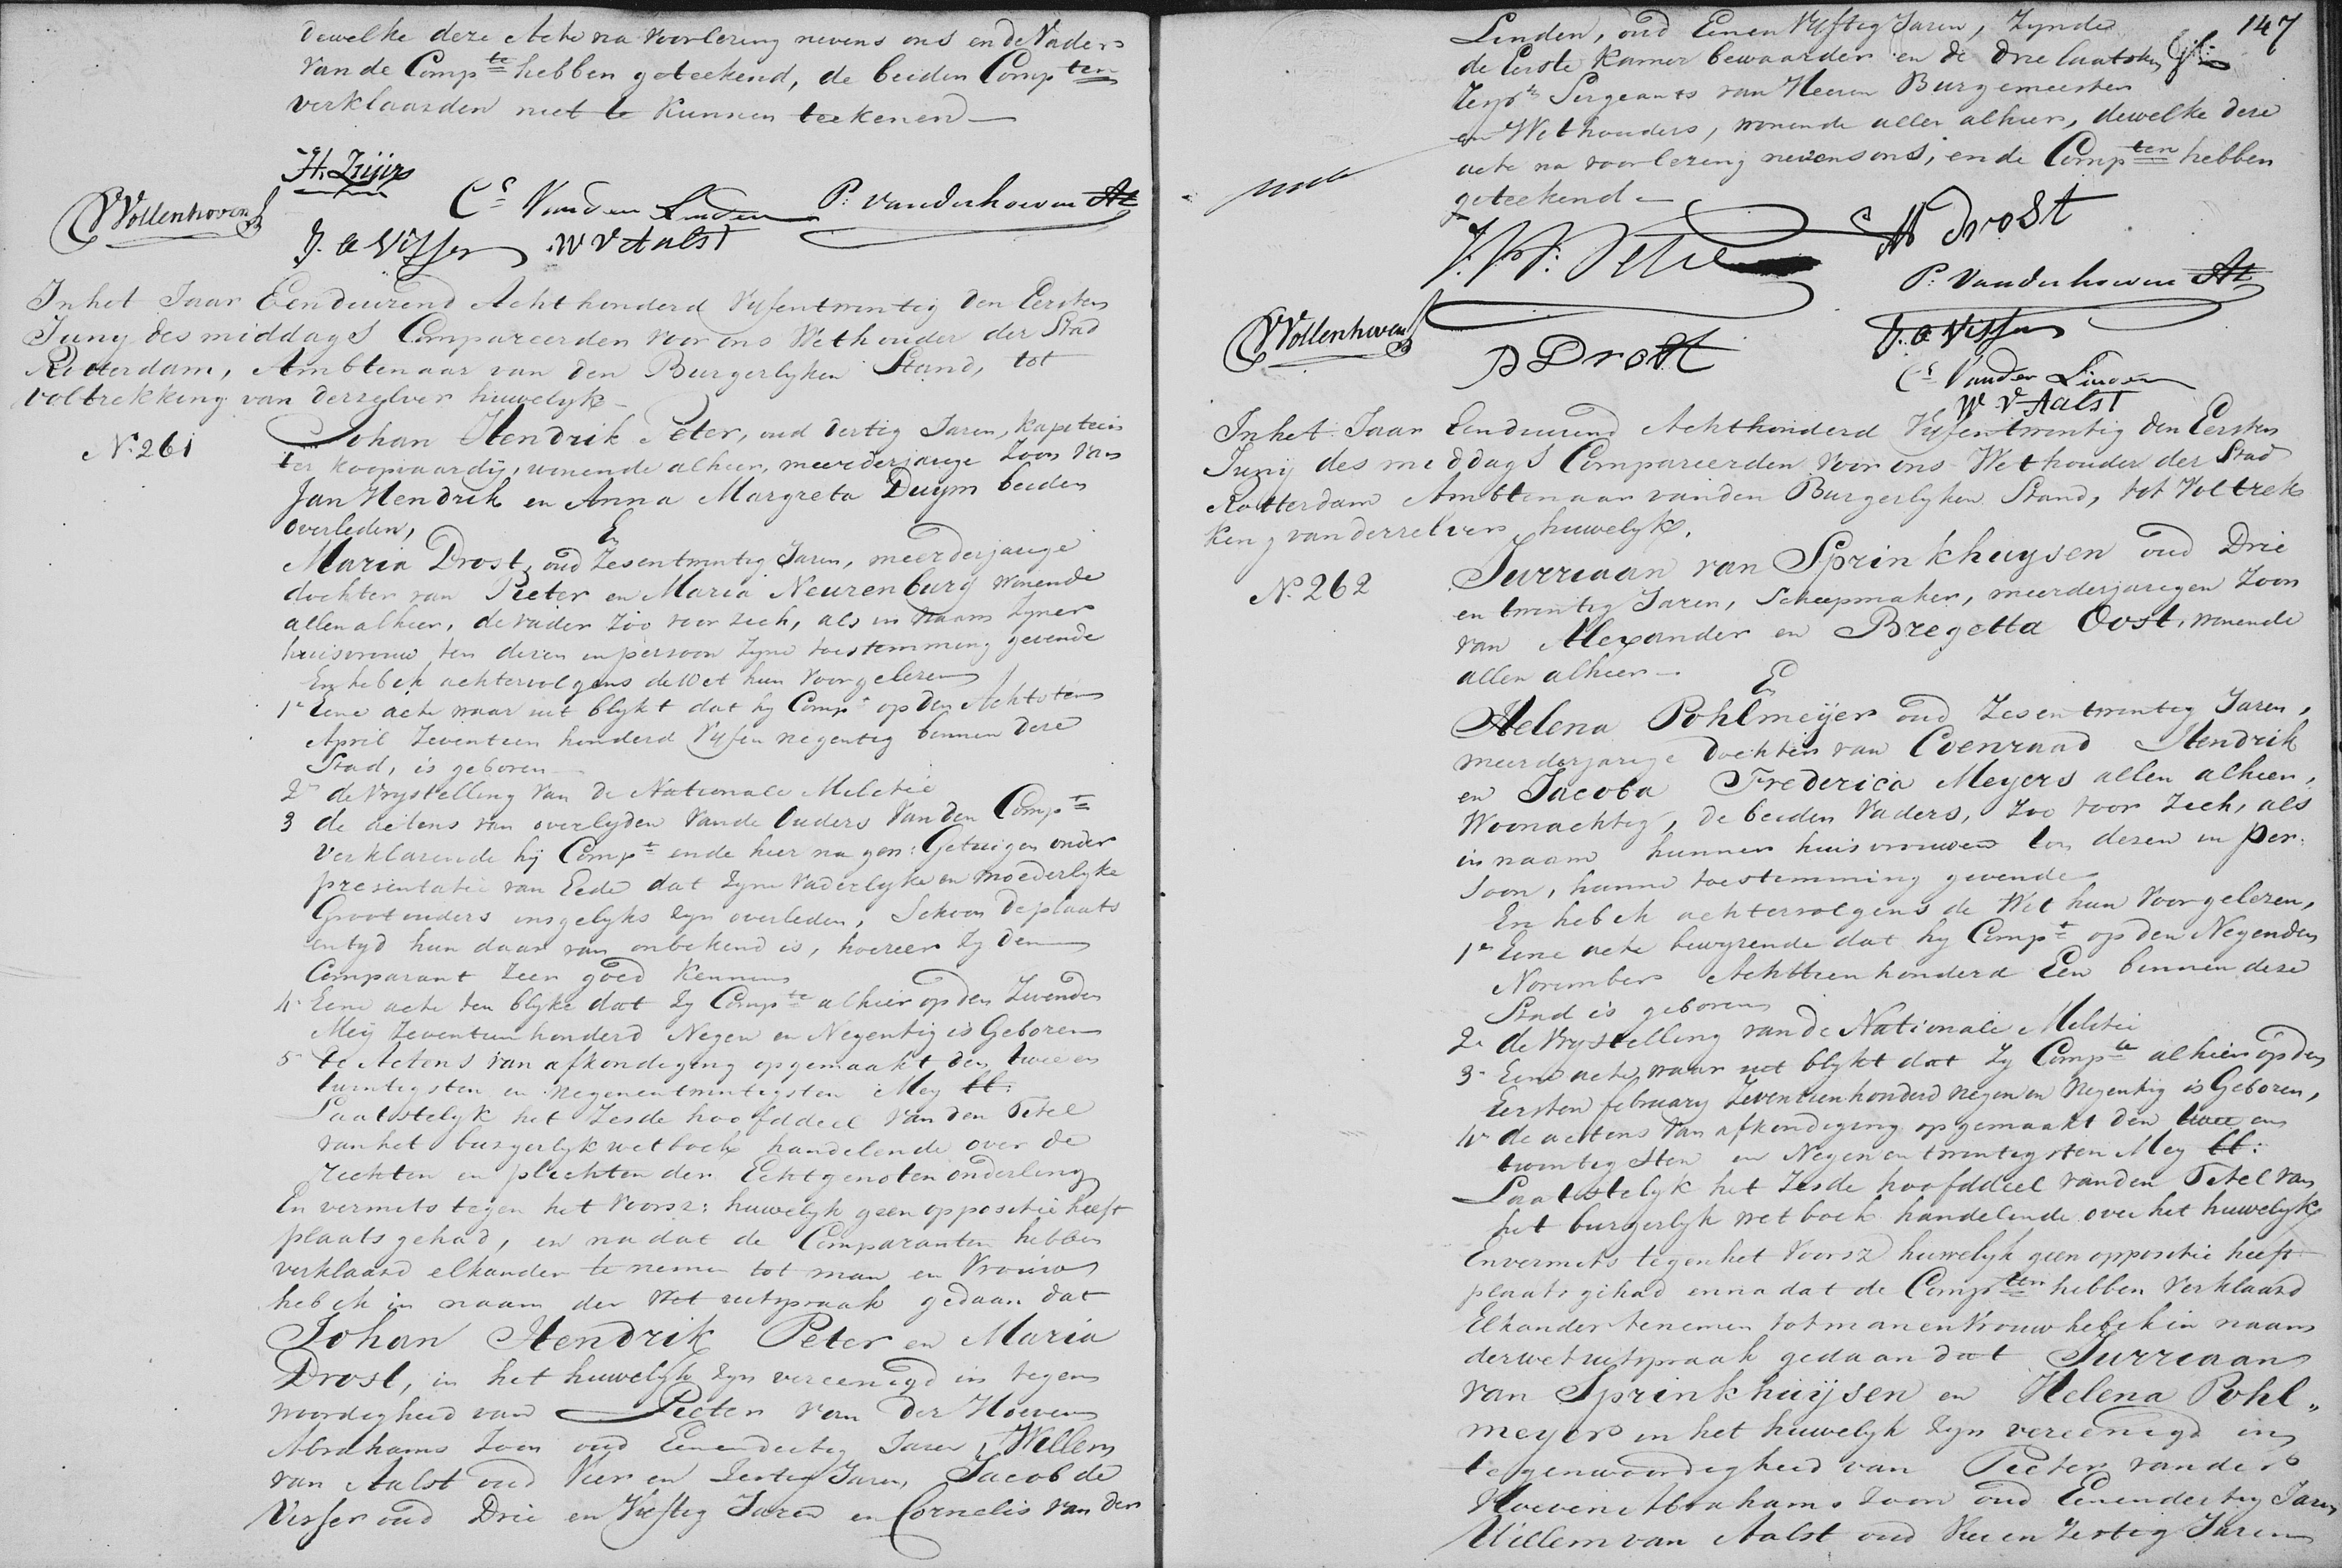 dewelke deze Acte na voorlezing nevens ons en de Vader
van de Comp.te hebben geteekend, de beiden Comp.ten
verklaarden niet te kunnen teekenen
H. Zuijr
VVollenhoven
C.s Van der Linden
P. van der hoeven Az
J. d Visser
W v Aalst
In het Jaar Eenduizend Acht honderd Vyfentwintig den Eersten
Juny des middags Compareerden voor ons Wethouder der Stad
Rotterdam, Ambtenaar van den Burgerlyken Stand, tot
voltrekking van derzelver huwelyk
N.o 261
Johan Hendrik Peter, oud dertig Jaren, kapitein
ter koopvaardij, wonende alhier, meerderjarige Zoon van
Jan Hendrik en Anna Margreta Duym beiden
overleden,
En
Maria Drost, oud Zesentwintig Jaren, meerderjarige
dochter van Pieter en Maria Neurenburg wonende
allen alhier, de vader zoo voor zich, als in naam zyner
huisvrouw ten dezen in persoon zyne toestemming gevende
En heb ik achtervolgens de Wet hun voorgelezen
1.e Eene acte waar uit blykt dat hy Comp.t op den Achtsten
April Zeventien honderd Vyfen negentig binnen deze
Stad, is geboren
2.e de Vrystelling van de Nationale Militie
3 de actens van overlyden van de Ouders van den Comp.t
verklarende hij Comp.t en de hier na gen: Getuigen onder
presentatie van Eede dat zyne vaderlyke en moederlyke
Grootouders insgelyks zyn overleden, Schoon de plaats
en tyd hun daar van onbekend is, hoezeer zy den
Comparant zeer goed kennen
4. Eene acte ten blyke dat zy Comp.te alhier op den Zevenden
Meij Zeventienhonderd Negen en Negentig is Geboren
5 de Actens van afkondiging opgemaakt den twee en
twintigsten en negenentwintigsten Mey ll:
Laatstelyk het Zesde hoofddeel van den Titel
van het burgerlyk wetboek handelende over de
rechten en plichten der Echtgenoten onderling
En vermits tegen het voorsz: huwelyk geen oppositie heeft
plaats gehad, en na dat de Comparanten hebben
verklaard elkander te nemen tot man en Vrouw
heb ik in naam der Wet uitspraak gedaan dat
Johan Hendrik Peter en Maria
Drost, in het huwelyk zyn vereenigd in tegen
woordigheid van Pieter van der Hoeven
Abrahams Zoon oud Eenendertig Jaren, Willem
van Aalst oud Vier en Zestig Jaren, Jacob de
Visser oud Drie en Vijftig Jaren en Cornelis van der
147
Linden, oud Eenen Vijftig Jaren, Zynde
de Eerste Kamer bewaarder en de drie laatsten
Sergeants van Heeren Burgemeesteren
en Wethouders, wonende allen alhier, dewelke deze
acte na voorlezing nevens ons, en de Comp.ten hebben
geteekend
J. H. Peter
M Drost
P. van der hoeven Az
VVollenhoven
P Drost
J. d Visser
C.s Van der Linden
W v Aalst
In het Jaar Eenduizend Achthonderd Vyfentwintig den Eersten
Junij des middags Compareerden voor ons Wethouder der Stad
Rotterdam Ambtenaar van den Burgerlyken Stand, tot Voltrek
king van derzelver huwelyk.
N.o 262
Jurriaan van Sprinkhuysen oud Drie
en twintig Jaren, Scheepmaker, meerderjarigen Zoon
van Alexander en Bregetta Oost, wonende
allen alhier
En
Helena Pohlmeijer oud Zesentwintig Jaren,
meerderjarige dochter van Coenraad Hendrik
en Jacoba Frederica Meyers allen alhier,
Woonachtig, de beiden Vaders, zoo voor zich, als
in naam hunner huisvrouwen ten dezen in per:
soon, hunne toestemming gevende
En heb ik achtervolgens de Wet hun voorgelezen,
1.e Eene acte bewyzende dat hy Comp.t op den Negenden
November Achttienhonderd Een binnen deze
Stad is geboren
2. de Vrystelling van de Nationale Militie
3. Eene acte waar uit blykt dat zy Comp.te alhier op den
Eersten february Zeventienhonderd negen en Negentig is Geboren,
4. de actens van afkondiging opgemaakt den twee en
twintigsten en Negen en twintigsten Mey ll:
Laatstelyk het Zesde hoofddeel van den Titel van
het burgerlyk wetboek handelende over het huwelyk
En vermits tegen het voorsz huwelyk geen oppositie heeft
plaats gehad en na dat de Comp.ten hebben verklaard
Elkander te nemen tot man en Vrouw heb ik in naam
der wet uitspraak gedaan dat Jurriaan
van Sprinkhuijsen en Helena Pohl„
meyer in het huwelyk zyn vereenigd in
tegenwoordigheid van Pieter van der
Hoeven Abrahams Zoon oud Eenendertig Jaren
Willem van Aalst oud Vier en Zestig Jaren